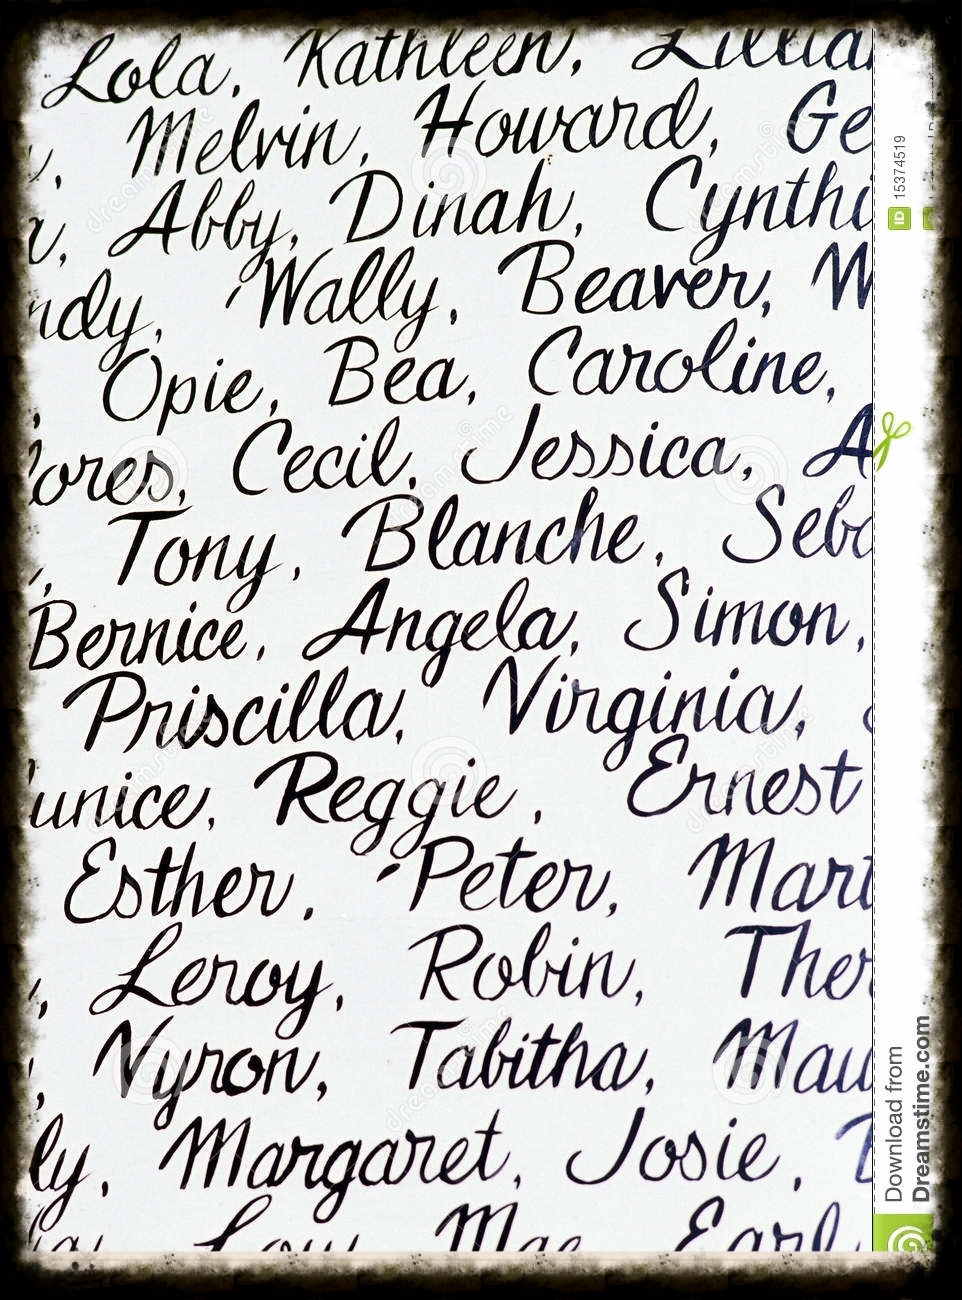 Lola, Kathleen, Lillia
Melvin, Howard, Ge
Abby, Dinah, Cynthi
ndy, Wally, Beaver, W
Opie, Bea, Caroline,
ores, Cecil, Jessica, A
Tony, Blanche, Seba
Bernice, Angela, Simon,
Priscilla, Virginia,
unice, Reggie, Ernest
Esther, Peter, Mari
Leroy, Robin, Ther
Vyron, Tabitha, Mau
ly, Margaret, Josie,
Lou, Mae, Earl,
ID 15374519
Download from
Dreamstime.com